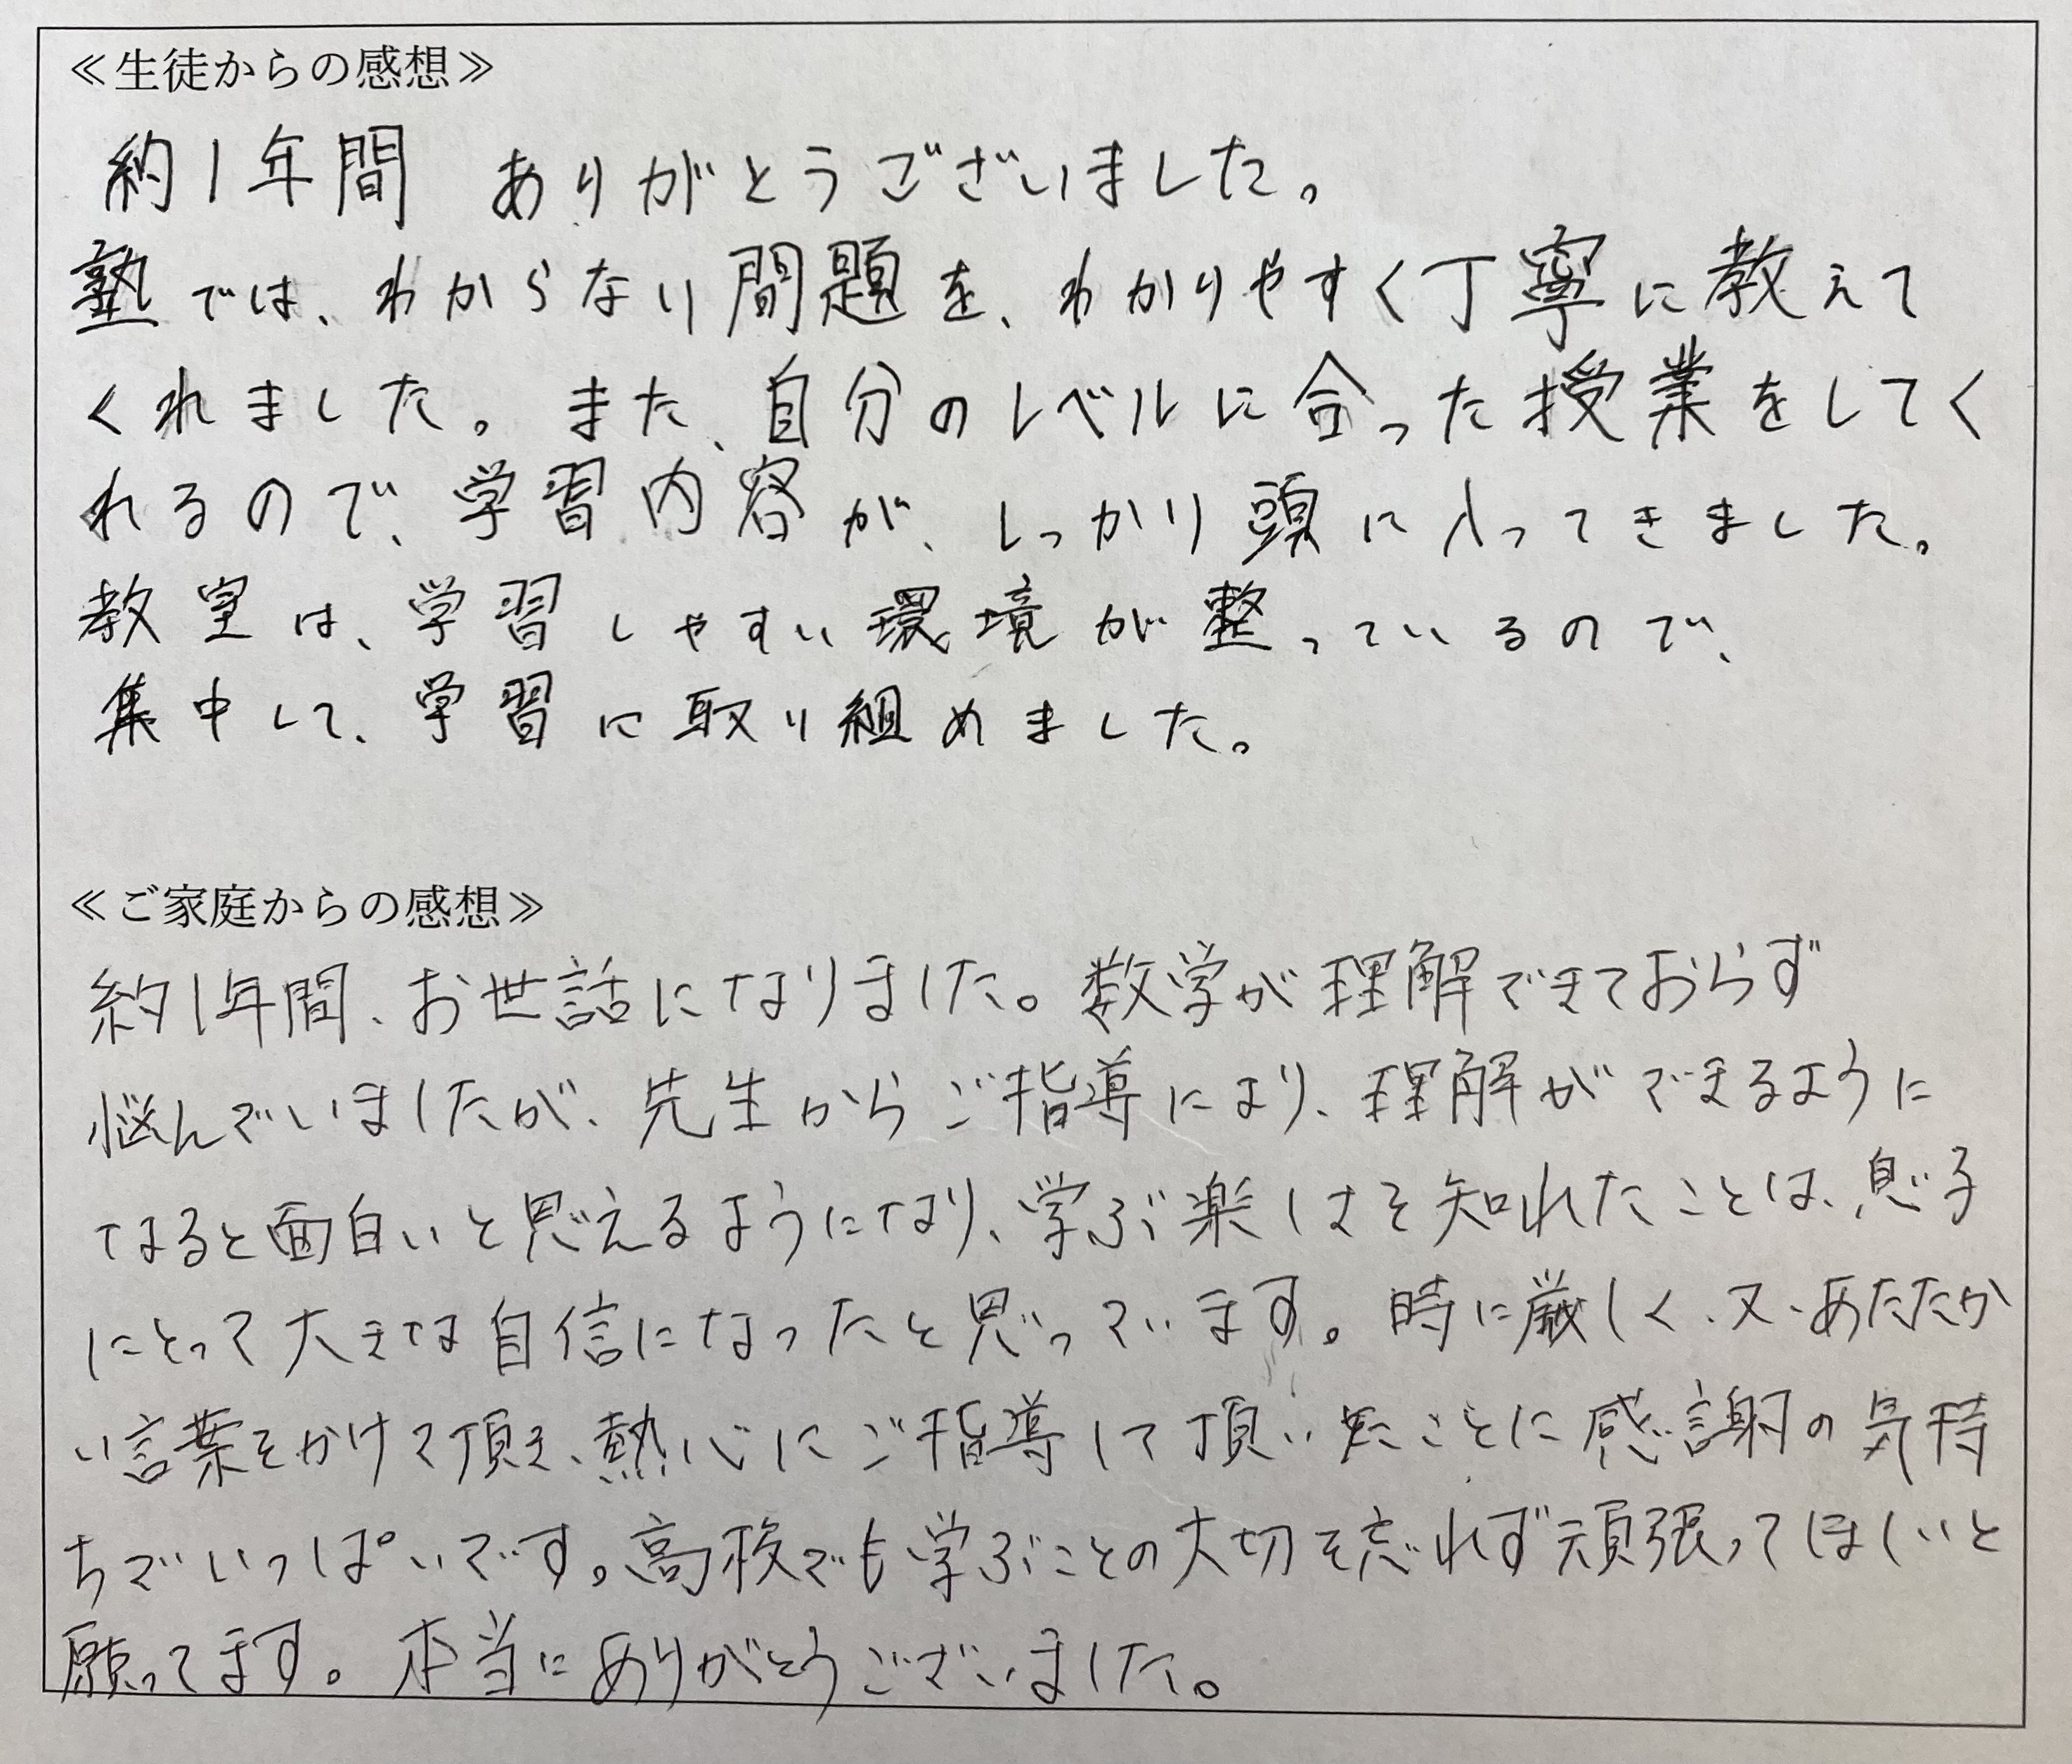 ≪生徒からの感想≫
約1年間 ありがとうございました。
塾では、わからない問題を、わかりやすく丁寧に教えて
くれました。また、自分のレベルに合った授業をしてく
れるので、学習内容が、しっかり頭に入ってきました。
教室は、学習しやすい環境が整っているので、
集中して、学習に取り組めました。
≪ご家庭からの感想≫
約1年間、お世話になりました。数学が理解できておらず
悩んでいましたが、先生からご指導により、理解ができるように
なると面白いと思えるようになり、学ぶ楽しさを知れたことは、息子
にとって大きな自信になったと思っています。時に厳しく、又、あたたか
い言葉をかけて頂き、熱心にご指導して頂いたことに感謝の気持
ちでいっぱいです。高校でも学ぶことの大切を忘れず頑張ってほしいと
願ってます。本当にありがとうございました。